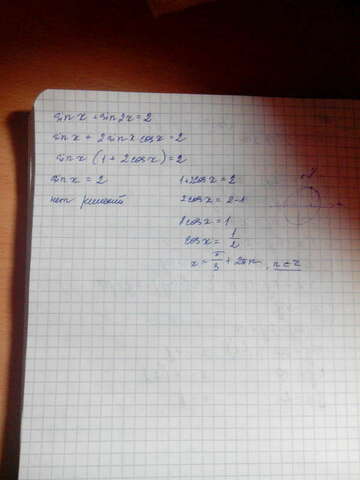 sin x + sin 2x = 2
sin x + 2 sin x cos x = 2
sin x (1 + 2cos x) = 2
sin x = 2
нет решений
1+2cos x = 2
2cos x = 2-1
2cos x = 1
cos x = 1/2
x = π/3 + 2πn, n ∈ Z